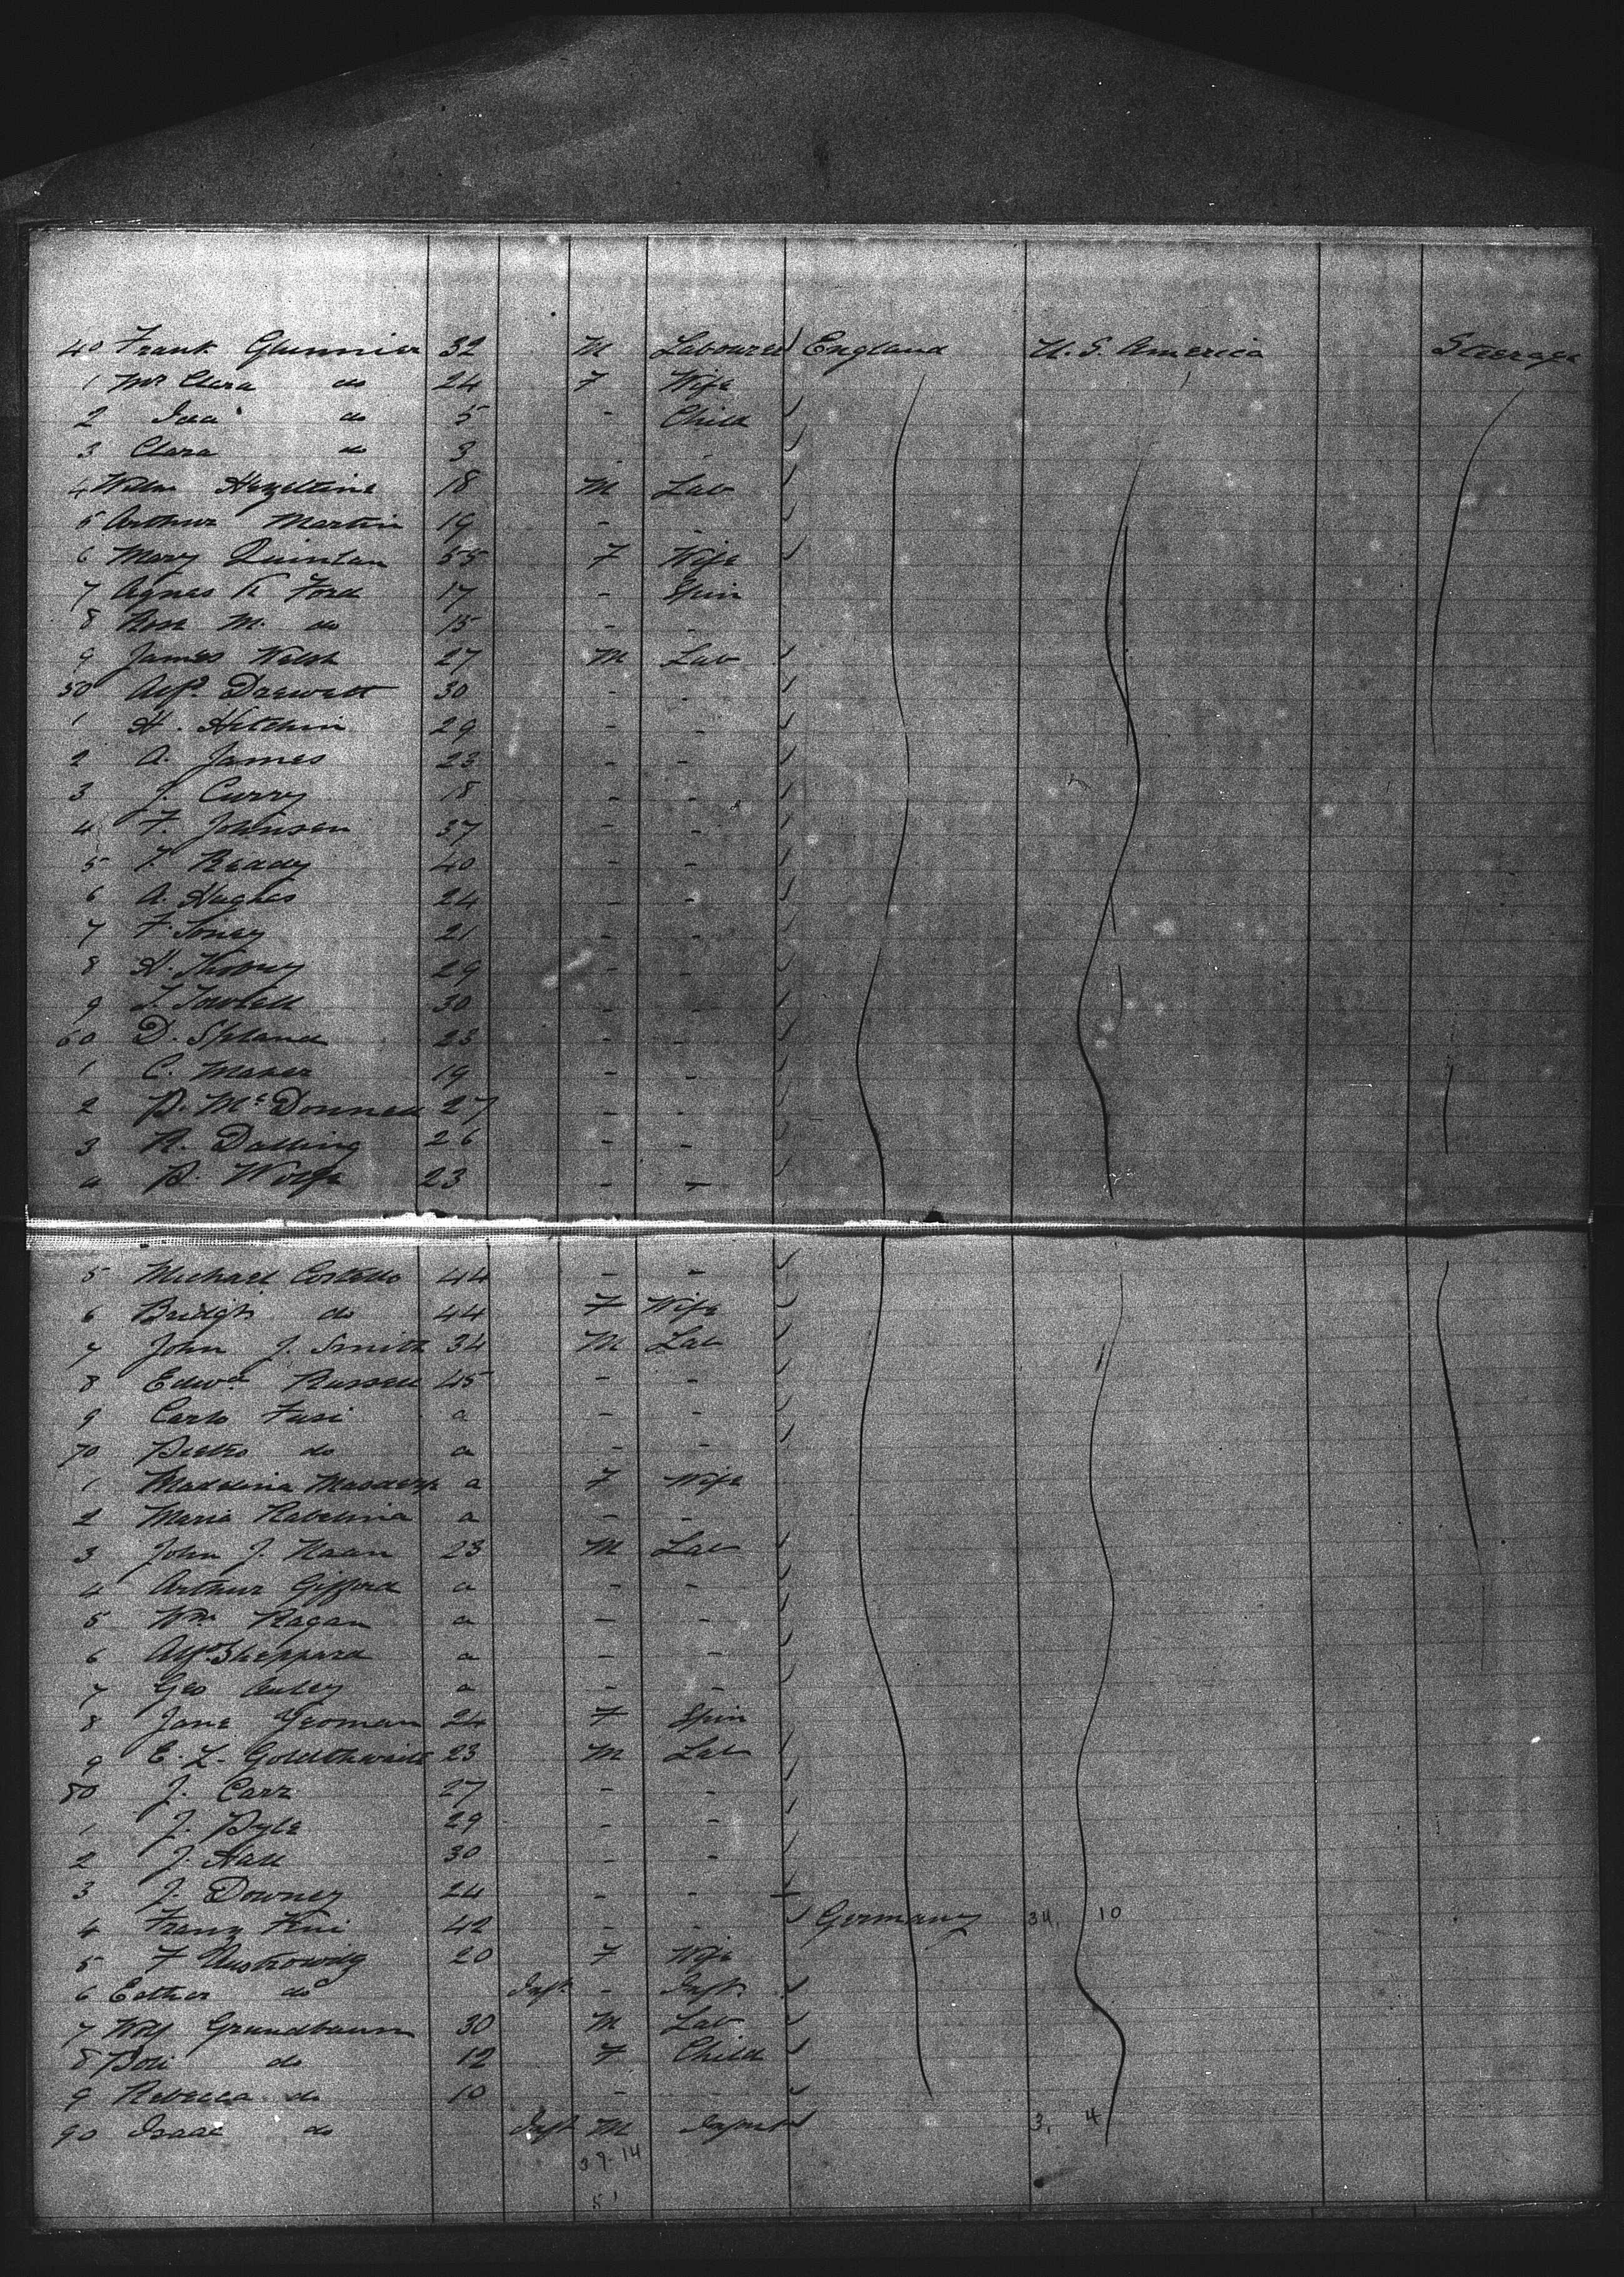 40 Frank Glunnier 32 M Labourer England U. S. America Steerage
1 Mrs Clara do 24 F Wife
2 Ida do 5 - Child
3 Clara do 3 - -
4 Willm Hazeltine 18 M Lab
5 Arthur Martin 19 - -
6 Mary Quinlan 55 F Wife
7 Agnes K Ford 17 - Spin
8 Rose M. do 15 - -
9 James Welsh 27 M Lab
50 Alfd Drewett 30 - -
1 H. Hitchin 29 - -
2 A. James 23 - -
3 J. Curry 18 - -
4 F. Johnson 37 - -
5 T. Ready 40 - -
6 A. Hughes 24 - -
7 F. Toney 21 - -
8 H. 29 - -
9 30 - -
60 D. 23 - -
1 C. Maher 19 - -
2 P. McDonnell 27 - -
3 R. Dalling 26 - -
4 P. Wolfe 23 - -
5 Michael Costello 44 - -
6 Bridgt do 44 F Wife
7 John J. Smith 34 M Lab
8 Edwd Russell 45 - -
9 Carlo Fusi a - -
70 Pietro do a - -
1 Maddelina a F Wife
2 Maria a - -
3 John J. Naan 23 M Lab
4 Arthur Gifford a - -
5 Wm Ragan a - -
6 Alfd Sheppard a - -
7 Geo Auley a - -
8 Jane Yeoman 24 F Spin
9 E. L. Goldthwaite 23 M Lab
80 J. Carr 27 - -
1 J. Pyle 29 - -
2 J. Hall 30 - -
3 J. Downey 24 - -
4 Franz 42 - - Germany 34. 10
5 F 20 F Wife
6 Esther do Inft - Inft
7 Wolf Grundbaum 30 M Lab
8 do 12 F Child
9 Rebecca do 10 - -
90 Isaac do Inft M Infant 3. 4
39-14
51